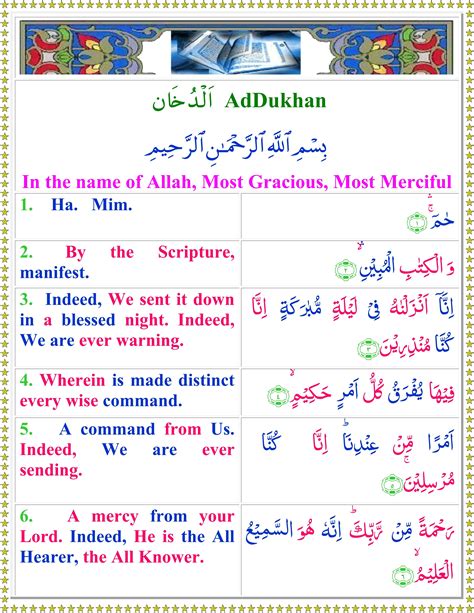 اَلْدُخَان AdDukhan
بِسْمِ اللَّهِ الرَّحْمَٰنِ الرَّحِيمِ
In the name of Allah, Most Gracious, Most Merciful
1. Ha. Mim.
حٰمٓ ۚ ﴿۱﴾
2. By the Scripture,
manifest.
وَ الْكِتٰبِ الْمُبِيْنِ ۙ ﴿۲﴾
3. Indeed, We sent it down
in a blessed night. Indeed,
We are ever warning.
اِنَّاۤ اَنْزَلْنٰهُ فِيْ لَيْلَةٍ مُّبٰرَكَةٍ اِنَّا
كُنَّا مُنْذِرِيْنَ ﴿۳﴾
4. Wherein is made distinct
every wise command.
فِيْهَا يُفْرَقُ كُلُّ اَمْرٍ حَكِيْمٍ ۙ ﴿۴﴾
5. A command from Us.
Indeed, We are ever
sending.
اَمْرًا مِّنْ عِنْدِنَا ؕ اِنَّا كُنَّا
مُرْسِلِيْنَ ۚ ﴿۵﴾
6. A mercy from your
Lord. Indeed, He is the All
Hearer, the All Knower.
رَحْمَةً مِّنْ رَّبِّكَ ؕ اِنَّهٗ هُوَ السَّمِيْعُ
الْعَلِيْمُ ۙ ﴿۶﴾